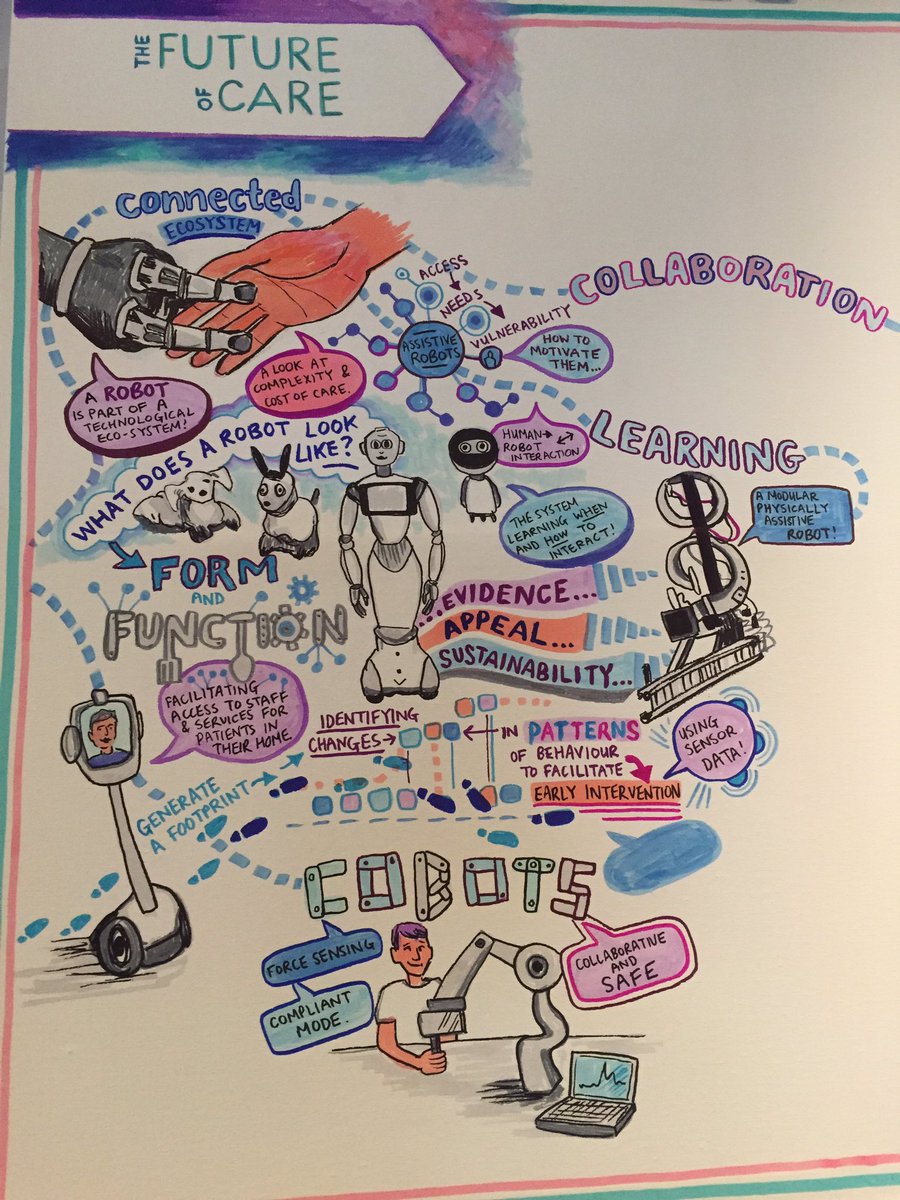 THE FUTURE
OF CARE
connected
ECOSYSTEM
COLLABORATION
ACCESS
NEEDS
VULNERABILITY
ASSISTIVE
ROBOTS
HOW TO
MOTIVATE
THEM...
A ROBOT
IS PART OF A
TECHNOLOGICAL
ECO-SYSTEM!
A LOOK AT
COMPLEXITY &
COST OF CARE.
WHAT DOES A ROBOT LOOK
LIKE?
HUMAN
ROBOT
INTERACTION
LEARNING
THE SYSTEM
LEARNING WHEN
AND HOW TO
INTERACT!
A MODULAR
PHYSICALLY
ASSISTIVE
ROBOT!
FORM
AND
FUNCTION
...EVIDENCE...
APPEAL...
SUSTAINABILITY...
FACILITATING
ACCESS TO STAFF
& SERVICES FOR
PATIENTS IN
THEIR HOME.
IDENTIFYING
CHANGES
IN PATTERNS
OF BEHAVIOUR
TO FACILITATE
EARLY INTERVENTION
USING
SENSOR
DATA!
GENERATE
A FOOTPRINT
COBOTS
FORCE SENSING
COMPLIANT
MODE.
COLLABORATIVE
AND
SAFE